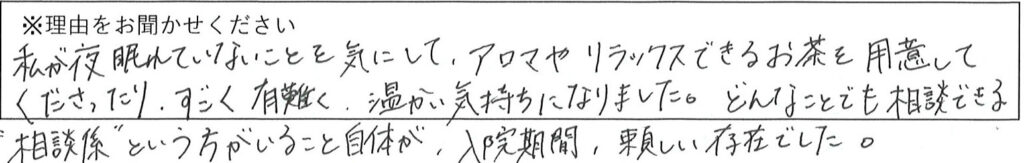 ※理由をお聞かせください
私が夜眠れていないことを気にして、アロマやリラックスできるお茶を用意して
くださったり、すごく有難く、温かい気持ちになりました。どんなことでも相談できる
"相談係"という方がいること自体が、入院期間、頼しい存在でした。